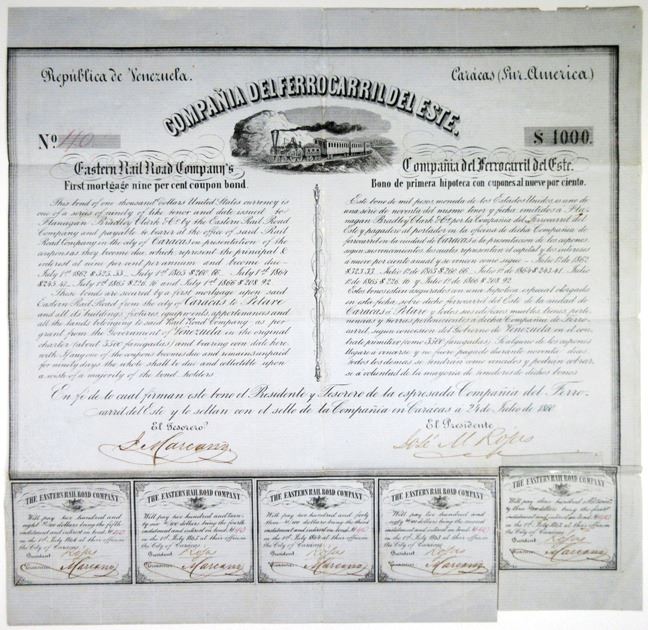 República de Venezuela.
Carácas (Sur. America)
COMPAÑIA DEL FERROCARRIL DEL ESTE.
Nº 40
$ 1000.
Eastern Rail Road Company's
First mortgage nine per cent coupon bond.
This bond of one thousand dollars United States currency is
one of a series of ninety of like tenor and date issued to
Flanagan Bradley Clark & Co by the Eastern Rail Road
Company and payable to bearer at the office of said Rail
Road Company in the city of Carácas on presentation of the
coupons as they become due which represent the principal &
interest at nine per cent per annum and become due
July 1st 1862 $ 323.33 July 1st 1863 $ 260.66 July 1st 1864
$ 243.41 July 1st 1865 $ 226.16 and July 1st 1866 $ 208.92
These bonds are secured by a first mortgage upon said
Eastern Rail Road from the city of Carácas to Petare
and all its buildings, fixtures equipments, appertenances and
all the lands belonging to said Rail Road Company as per
grant from the Government of Venezuela in the original
charter (about 3500 fanegadas) and bearing even date here
with. If any one of the coupons become due and remains unpaid
for ninety days the whole shall be due and collectible upon
a wish of a majority of the bond holders
Compañia del Ferrocarril del Este.
Bono de primera hipoteca con cupones al nueve por ciento.
Este bono de mil pesos moneda de los Estados Unidos, es uno de
una serie de noventa del mismo tenor y fecha emitidos á Fla-
nagan Bradley Clark & Co por la Compañia del Ferrocarril del
Este y pagadero al portador en la oficina de dicha Compañia de
ferrocarril en la ciudad de Carácas á la presentacion de los cupones
segun su vencimiento, los cuales representan el capital y los intereses
á nueve por ciento anual y se vencen como sigue - Julio 1º de 1862
$ 323.33 Julio 1º de 1863 $ 260.66. Julio 1º de 1864 $ 243.41. Julio
1º de 1865 $ 226.16 y Julio 1º de 1866 $ 208.92.
Estos bonos estan asegurados en una hipoteca especial otorgada
en esta fecha sobre dicho ferrocarril del Este de la ciudad de
Carácas á Petare y todos sus edificios muebles bienes perte-
nencias y tierras pertenecientes á dicha Compañia de Ferro-
carril segun concesion del Gobierno de Venezuela en el con-
trato primitivo (como 3500 fanegadas). Si alguno de los cupones
llegare á vencerse y no fuere pagado durante noventa dias
todos los demas se tendrán como vencidos y podrán cobrar-
se á voluntad de la mayoria de tenedores de dichos bonos
En fé de lo cual firman este bono el Presidente y Tesorero de la espresada Compañia del Ferro-
carril del Este y lo sellan con el sello de la Compañia en Carácas á 24 de Julio de
El Tesorero
El Presidente
J. Marcano
José M. Rójas
THE EASTERN RAIL ROAD COMPANY
Will pay two hundred and
eight 92/100 dollars being the fifth
installment and interest on bond Nº 40
on the 1st July 1866 at their office in
the City of Carácas
President Rójas
Treasurer Marcano
THE EASTERN RAIL ROAD COMPANY
Will pay two hundred and twen-
ty six 16/100 dollars being the fourth
installment and interest on bond Nº 40
on the 1st July 1865 at their office in
the City of Carácas
President Rójas
Treasurer Marcano
THE EASTERN RAIL ROAD COMPANY
Will pay two hundred and forty
three 41/100 dollars being the third
installment and interest on bond Nº 40
on the 1st July 1864 at their office in
the City of Carácas
President Rójas
Treasurer Marcano
THE EASTERN RAIL ROAD COMPANY
Will pay two hundred and
sixty 66/100 dollars being the second
installment and interest on bond Nº 40
on the 1st July 1863 at their office in
the City of Carácas
President Rójas
Treasurer Marcano
THE EASTERN RAIL ROAD COMPANY
Will pay three hundred
three dollars being the first
installment and interest on bond Nº
on the 1st July 1862 at their office in
the City of Carácas
President Rójas
Treasurer Marcano